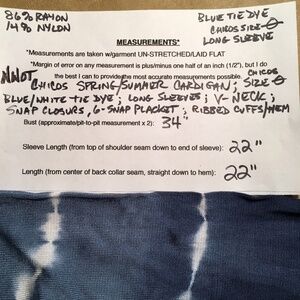 86% RAYON
14% NYLON
BLUE TIE DYE
CHICOS SIZE 0
LONG SLEEVE
MEASUREMENTS*
*Measurements are taken w/garment UN-STRETCHED/LAID FLAT
*Margin of error on any measurement is plus/minus one half of an inch (1/2"), but I do
the best I can to provide the most accurate measurements possible.
NWOT CHICOS SPRING/SUMMER CARDIGAN; CHICOS SIZE 0
BLUE/WHITE TIE DYE; LONG SLEEVES; V-NECK;
SNAP CLOSURES, 6-SNAP PLACKET; RIBBED CUFFS/HEM
Bust (approximate/pit-to-pit measurement x 2): 34"
Sleeve Length (from top of shoulder seam down to end of sleeve): 22"
Length (from center of back collar seam, straight down to hem): 22"